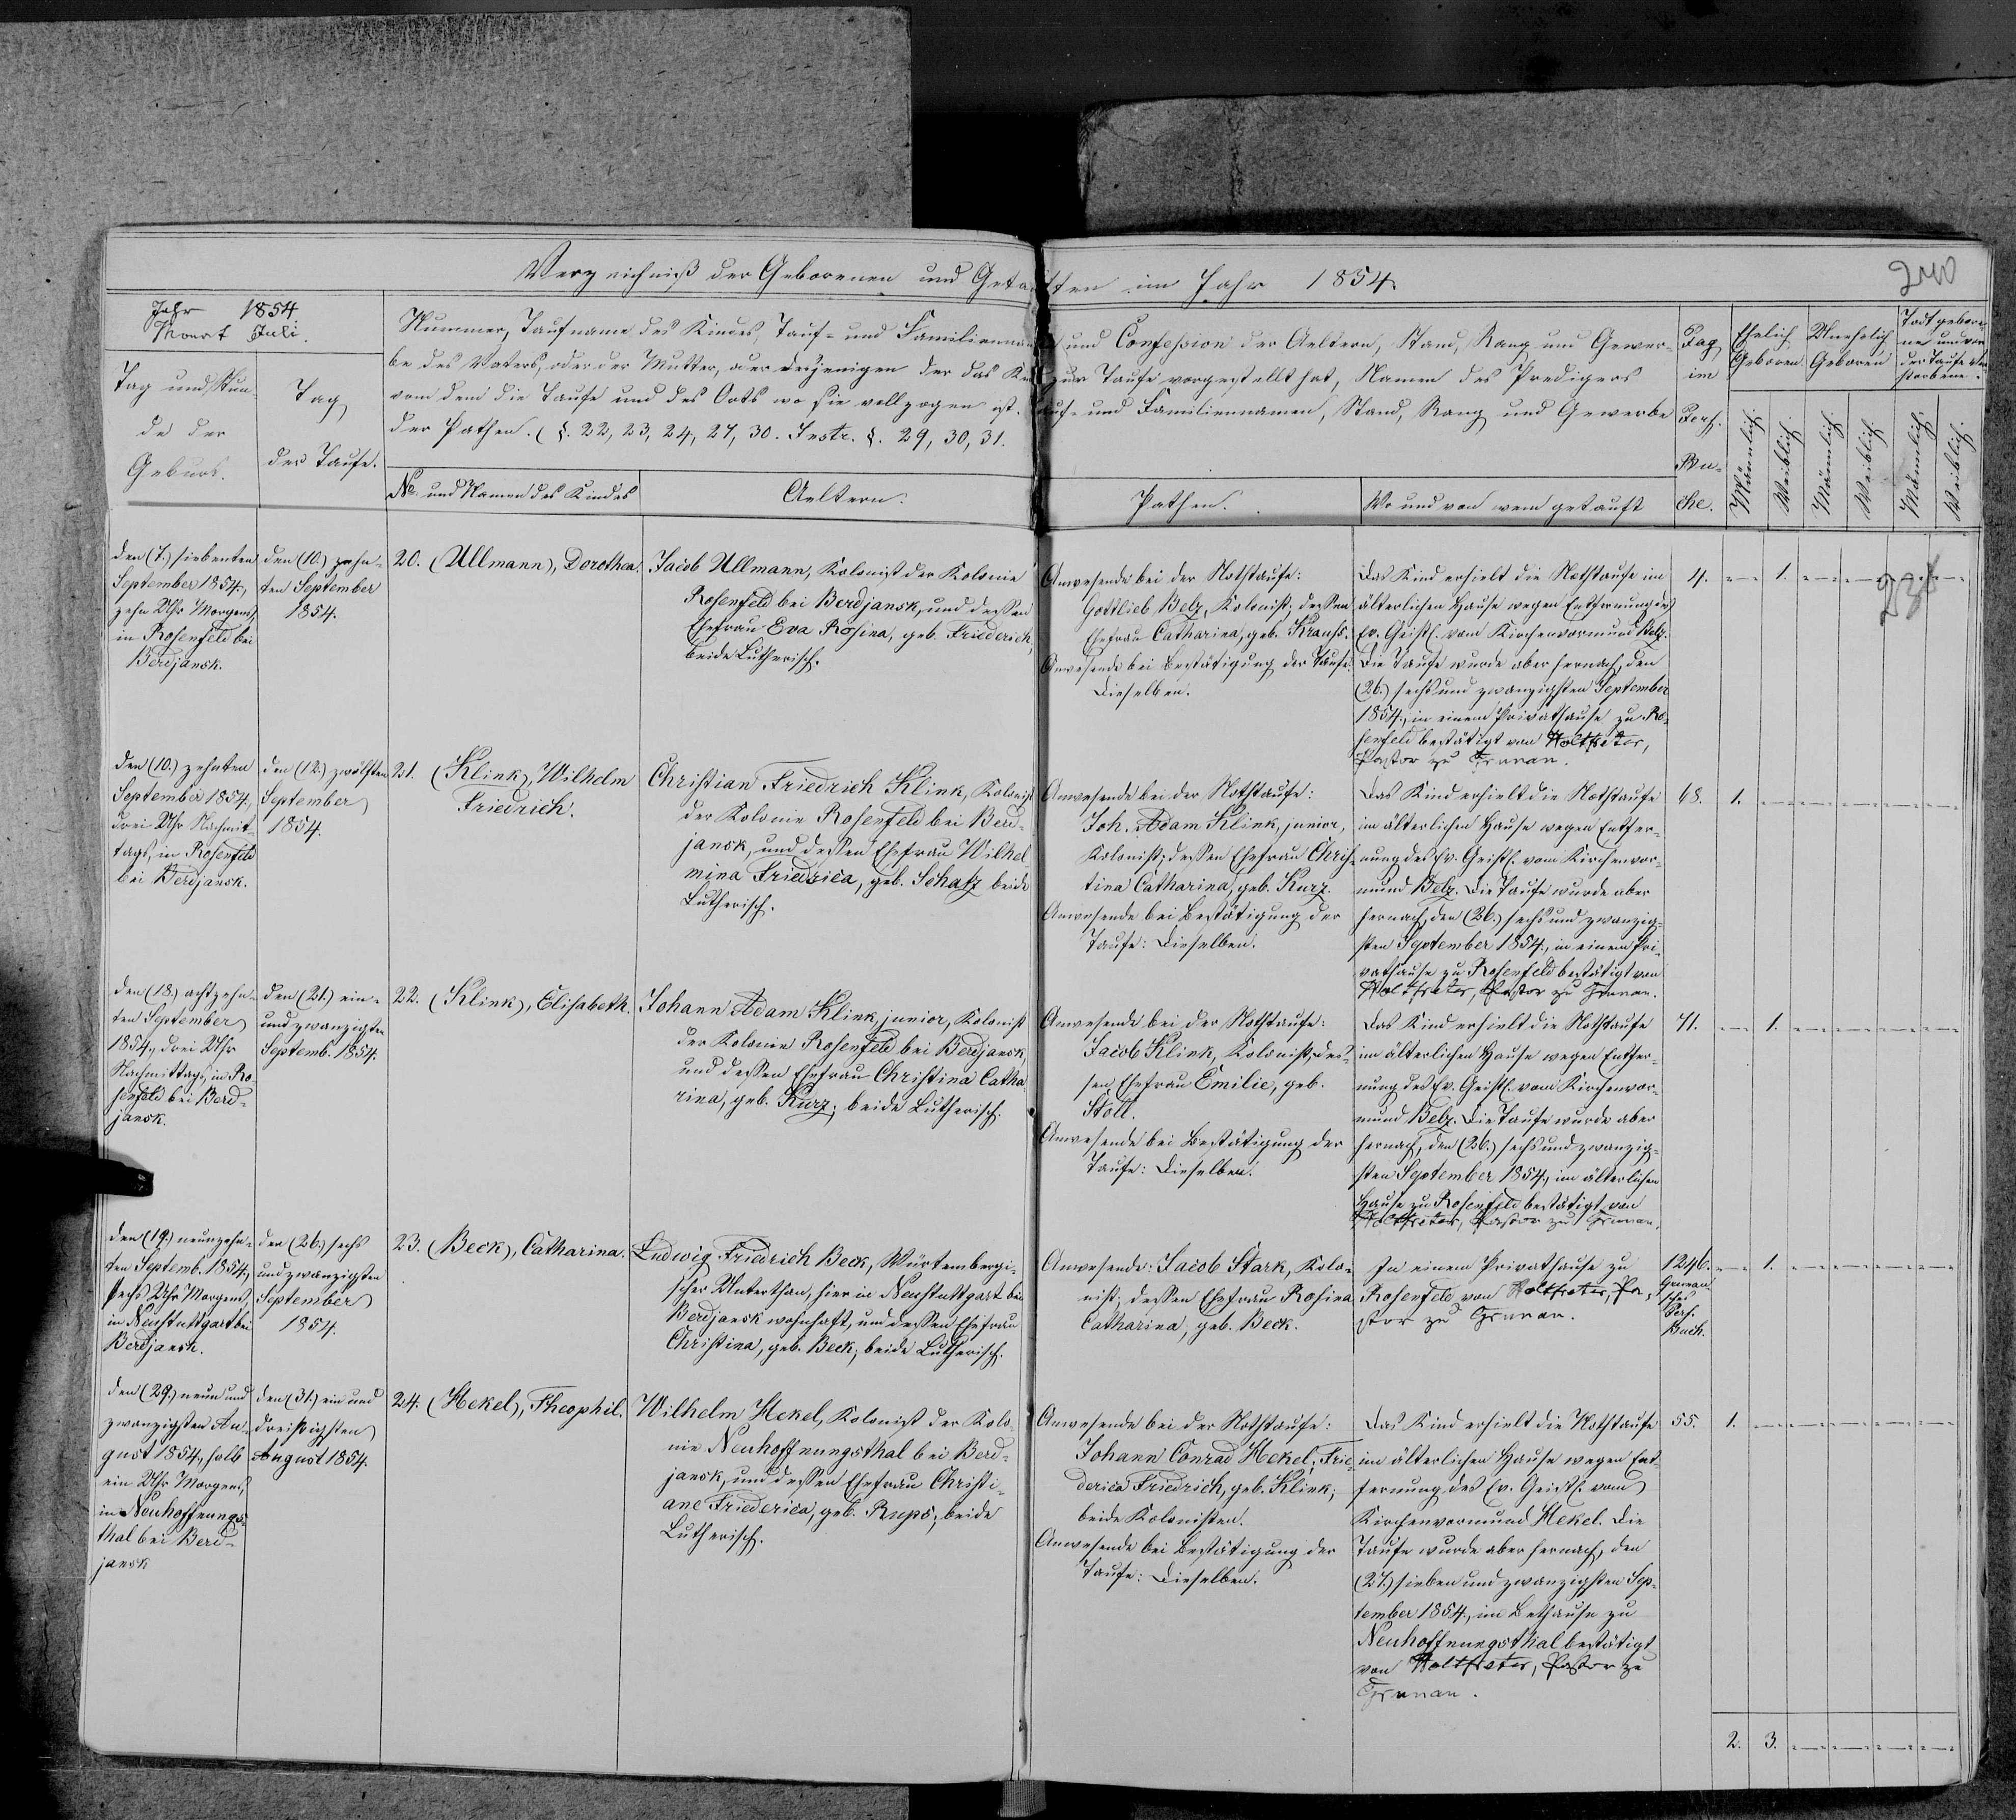 Verzeichniß der Geborenen und Getauften im Jahr 1854.
240
Jahr 1854
Monat Juli.
Tag und Stun-
de der
Geburt.
Tag
der Taufe.
Nummer, Taufname des Kindes, Tauf- und Familiennamen und Confession der Aeltern, Stand, Rang und Gewer-
be des Vaters, oder der Mutter, oder desjenigen der das Kind zur Taufe vorgestellt hat, Namen des Predigers
von dem die Taufe und des Orts wo sie vollzogen ist. Tauf- und Familiennamen, Stand, Rang und Gewerbe
der Pathen. (§. 22, 23, 24, 27, 30. Instr. §. 29, 30, 31.
No. und Namen des Kindes
Aeltern.
Pathen.
Wo und von wem getauft
Pag
im
Pers.
Bu-
che.
Ehelich
Geboren
Unehelich
Geboren
Todtgebore-
ne und vor
der Taufe Ver-
storbene.
Männlich.
Weiblich.
Männlich.
Weiblich.
Männlich.
Weiblich.
den (7.) siebenten
September 1854.,
zehn Uhr Morgens,
in Rosenfeld bei
Berdjansk.
den (10.) zehn-
ten September
1854.
20. (Ullmann), Dorothea.
Jacob Ullmann, Kolonist der Kolonie
Rosenfeld bei Berdjansk, und dessen
Ehefrau Eva Rosina, geb. Friederich,
beide Lutherisch.
Anwesende bei der Nothtaufe:
Gottlieb Belz, Kolonist; dessen
Ehefrau Catharina, geb. Krauß.
Anwesende bei Bestätigung der Taufe:
Dieselben.
Das Kind erhielt die Nothtaufe im
älterlichen Hause wegen Entfernung des
Ev. Geistl. vom Kirchenvormund Belz.
Die Taufe wurde aber hernach, den
(26.) sechs und zwanzigsten September
1854., in einem Privathause zu Ro-
senfeld bestätigt von Holtfreter,
Pastor zu Grunau.
4.
1.
den (10.) zehnten
September 1854.,
drei Uhr Nachmit-
tags, in Rosenfeld
bei Berdjansk.
den (12.) zwölften
September
1854.
21. (Klink), Wilhelm
Friedrich.
Christian Friedrich Klink, Kolonist
der Kolonie Rosenfeld bei Berd-
jansk, und dessen Ehefrau Wilhel-
mina Friedrica, geb. Schatz beide
Lutherisch.
Anwesende bei der Nothtaufe:
Joh. Adam Klink, junior,
Kolonist; dessen Ehefrau Chris-
tina Catharina, geb. Kurz.
Anwesende bei Bestätigung der
Taufe: Dieselben.
Das Kind erhielt die Nothtaufe
im älterlichen Hause wegen Entfer-
nung des Ev. Geistl. vom Kirchenvor-
mund Belz. Die Taufe wurde aber
hernach, den (26.) sechs und zwanzig-
sten September 1854., in einem Pri-
vathause zu Rosenfeld bestätigt von
Holtfreter, Pastor zu Grunau.
68.
1.
den (18.) achtzehn-
ten September
1854., drei Uhr
Nachmittags, in Ro-
senfeld bei Berd-
jansk.
den (21.) ein-
und zwanzigsten
Septemb. 1854.
22. (Klink), Elisabeth.
Johann Adam Klink, junior, Kolonist
der Kolonie Rosenfeld bei Berdjansk,
und dessen Ehefrau Christina Catha-
rina, geb. Kurz; beide Lutherisch.
Anwesende bei der Nothtaufe:
Jacob Klink, Kolonist; des-
sen Ehefrau Emilie, geb.
Stoll.
Anwesende bei Bestätigung der
Taufe: Dieselben.
Das Kind erhielt die Nothtaufe
im älterlichen Hause wegen Entfer-
nung des Ev. Geistl. vom Kirchenvor-
mund Belz. Die Taufe wurde aber
hernach, den (26.) sechs und zwanzig-
sten September 1854., im älterlichen
Hause zu Rosenfeld bestätigt von
Holtfreter, Pastor zu Grunau.
71.
1.
den (19.) neunzehn-
ten Septemb. 1854.,
sechs Uhr Morgens,
in Neustuttgart bei
Berdjansk.
den (26.) sechs
und zwanzigsten
September
1854.
23. (Beck), Catharina.
Ludwig Friedrich Beck, Würtembergi-
scher Unterthan, hier in Neustuttgart bei
Berdjansk wohnhaft, und dessen Ehefrau
Christina, geb. Beck; beide Lutherisch.
Anwesende: Jacob Stark, Kolo-
nist; dessen Ehefrau Rosina
Catharina, geb. Beck.
In einem Privathause zu
Rosenfeld von Holtfreter, Pa-
stor zu Grunau.
1246.
Grunau-
sches
Pers.
Buch.
1.
den (29.) neun und
zwanzigsten Au-
gust 1854., halb
ein Uhr Morgens,
in Neuhoffnungs-
thal bei Berd-
jansk
den (31.) ein und
dreißigsten
August 1854.
24. (Hekel), Theophil.
Wilhelm Hekel, Kolonist der Kolo-
nie Neuhoffnungsthal bei Berd-
jansk, und dessen Ehefrau Christi-
ane Friederica, geb. Rups; beide
Lutherisch.
Anwesende bei der Nothtaufe:
Johann Conrad Hekel; Frie-
derica Friedrich, geb. Klink;
beide Kolonisten.
Anwesende bei Bestätigung der
Taufe: Dieselben.
Das Kind erhielt die Nothtaufe
im älterlichen Hause wegen Ent-
fernung des Ev. Geistl. vom
Kirchenvormund Hekel. Die
Taufe wurde aber hernach, den
(27.) sieben und zwanzigsten Sep-
tember 1854., im Bethause zu
Neuhoffnungsthal bestätigt
von Holtfreter, Pastor zu
Grunau.
55.
1.
2. 3.